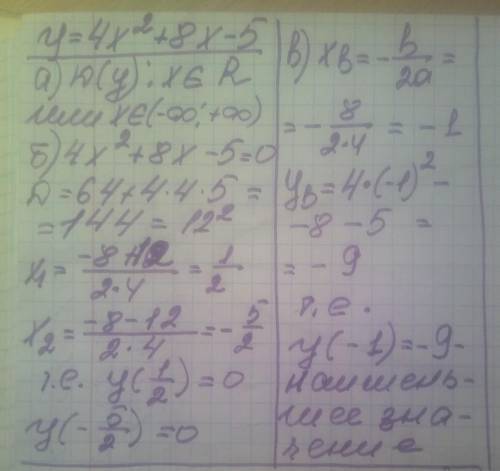 y = 4x² + 8x - 5
а) D(y): x ∈ R
или x ∈ (-∞; +∞)
б) 4x² + 8x - 5 = 0
D = 64 + 4·4·5 =
= 144 = 12²
x₁ = (-8+12)/(2·4) = 1/2
x₂ = (-8-12)/(2·4) = -5/2
т.е. y(1/2) = 0
y(-5/2) = 0
в) xв = -b/2a =
= -8/(2·4) = -1
yв = 4·(-1)² -
-8 - 5 =
= -9
т.е.
y(-1) = -9 -
наимень-
шее зна-
чение